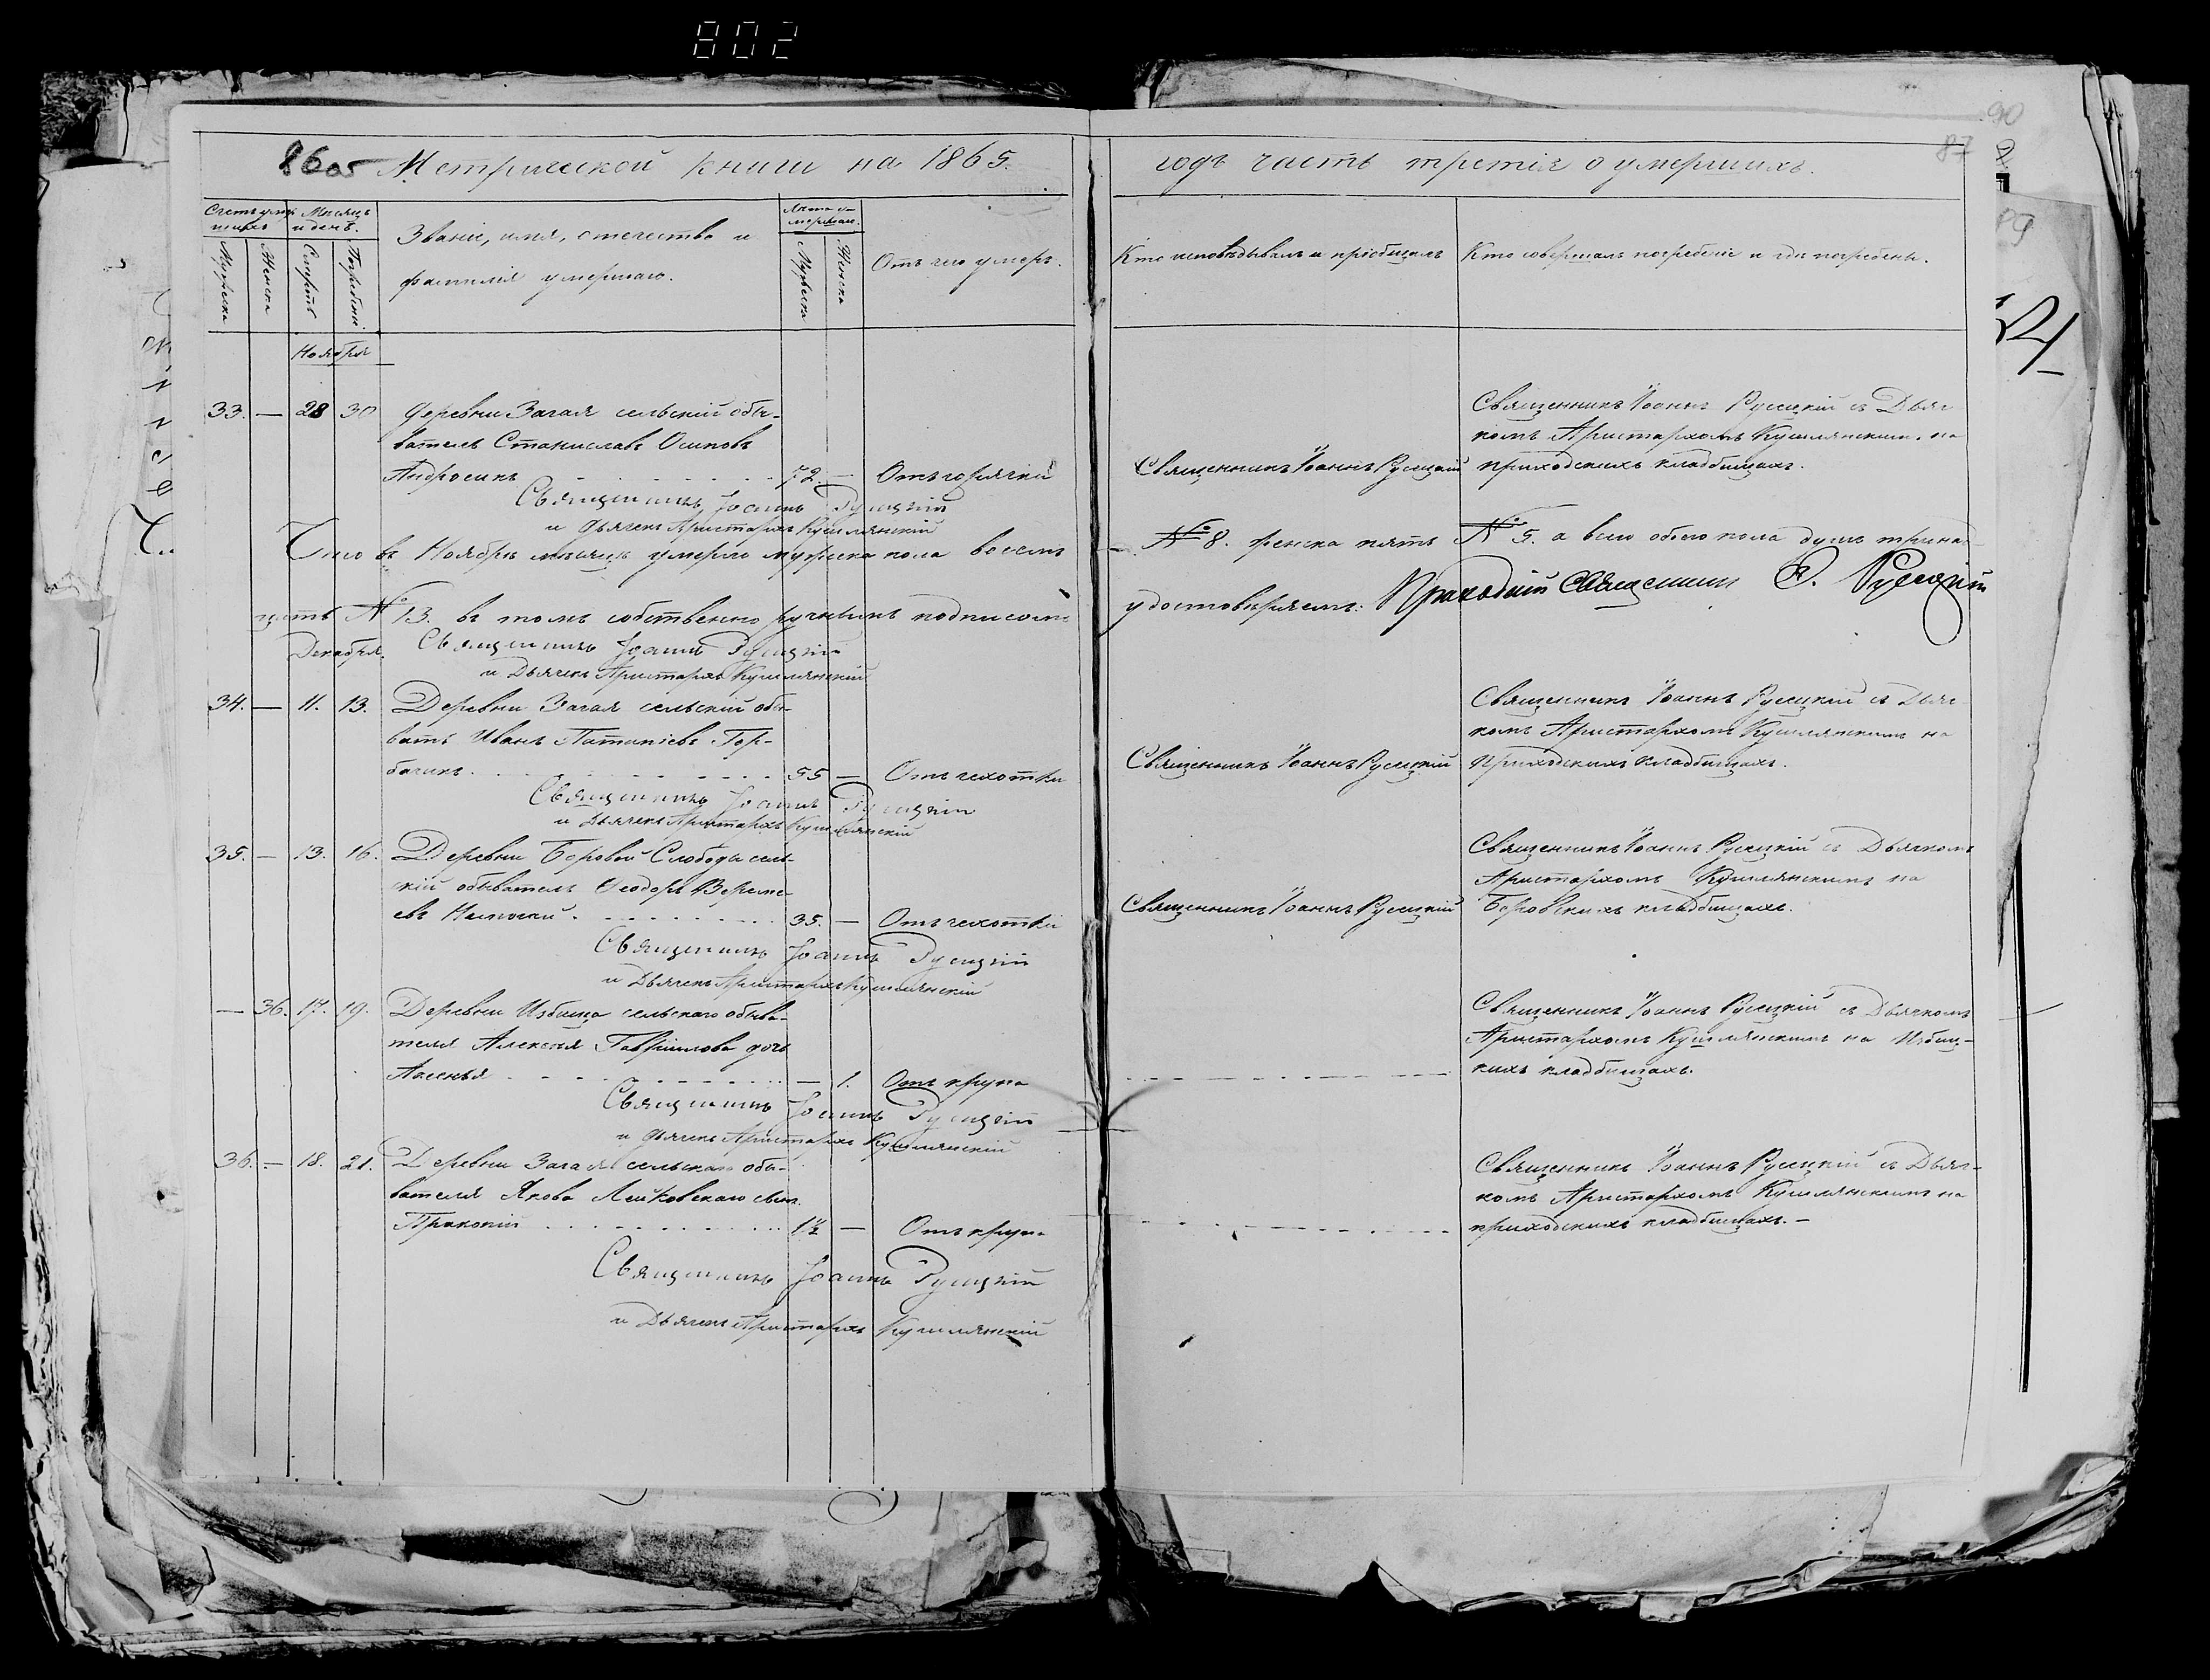 802
90
87
86 об Метрической книги на 1865.
годъ часть третія о умершихъ.
Счетъ умершихъ
Мужеска
Женска
Мѣсяцъ и день.
Смерть
Погребенія
Званіе, имя, отечество и
фамилія умершаго.
Лѣта умершаго.
Мужеска
Женска
Отъ чего умеръ.
Кто исповѣдывалъ и пріобщалъ
Кто совершалъ погребеніе и гдѣ погребены.
Ноября
33. — 28 30 Деревни Загая сельскій обы-
ватель Станиславъ Осиповъ
Андросикъ 72. — Отъ горячки
Священникъ Іоаннъ Русецкій
Священникъ Іоаннъ Русецкій съ Дьяч
комъ Аристархомъ Кушлянскимъ. на
приходскихъ кладбищахъ.
Священникъ Іоаннъ Русецкій
и Дьячекъ Аристархъ Кушлянскій
Итого въ Ноябрѣ мѣсяцѣ умерло мужеска пола восемь
№ 8. женска пять № 5. а всего обоего пола душъ трина-
цать № 13. въ томъ собственно ручнымъ подписомъ
удостовѣряемъ: Приходскій Священникъ І. Русецкій
Священникъ Іоаннъ Русецкій
и Дьячекъ Аристархъ Кушлянскій
Декабря.
34. — 11. 13. Деревни Загая сельскій обы-
ватъ Иванъ Патапіевъ Гор-
бачикъ 55 — Отъ чехотки
Священникъ Іоаннъ Русецкій
Священникъ Іоаннъ Русецкій съ Дьяч
комъ Аристархомъ Кушлянскимъ на
Приходскихъ кладбищахъ.
Священникъ Іоаннъ Русецкій
и Дьячекъ Аристархъ Кушлянскій
35. — 13. 16. Деревни Боровой Слободы сель-
скій обыватель Ѳеодоръ
евъ 35. — Отъ чехотки
Священникъ Іоаннъ Русецкій
Священникъ Іоаннъ Русецкій съ Дьячкомъ
Аристархомъ Кушлянскимъ на
Боровскихъ кладбищахъ.
Священникъ Іоаннъ Русецкій
и Дьячекъ Аристархъ Кушлянскій
— 36. 17. 19. Деревни Избища сельскаго обыва-
теля Алексѣя Гавріилова дочь
— 1. Отъ крупа
Священникъ Іоаннъ Русецкій съ Дьячкомъ
Аристархомъ Кушлянскимъ на Избищ-
кихъ кладбищахъ.
Священникъ Іоаннъ Русецкій
и Дьячекъ Аристархъ Кушлянскій
36. — 18. 21. Деревни Загая сельскаго обы-
вателя Якова Лейковскаго сынъ
Пракопій 1½ — Отъ крупа
Священникъ Іоаннъ Русецкій съ Дьяч-
комъ Аристархомъ Кушлянскимъ на
приходскихъ кладбищахъ. —
Священникъ Іоаннъ Русецкій
и Дьячекъ Аристархъ Кушлянскій